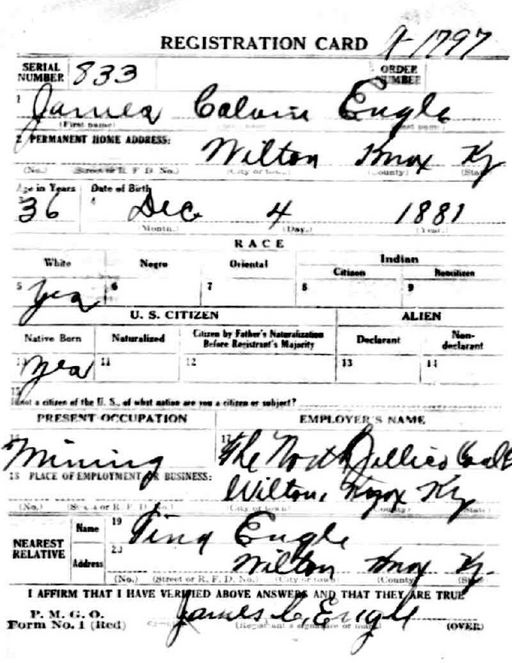 REGISTRATION CARD A-1797
SERIAL NUMBER 833 ORDER NUMBER
1 James Calvin Engle
(First name)
2 PERMANENT HOME ADDRESS:
Wilton Knox Ky
(No.) (Street or R. F. D. No.) (City or town) (County) (State)
Age in Years Date of Birth
36 4 Dec 4 1881
(Month.) (Day.) (Year.)
RACE
White Negro Oriental Indian
Citizen Noncitizen
5 Yea 6 7 8 9
U. S. CITIZEN ALIEN
Native Born Naturalized Citizen by Father's Naturalization Before Registrant's Majority Declarant Non-declarant
Yea 11 12 13 14
15
If not a citizen of the U. S., of what nation are you a citizen or subject?
PRESENT OCCUPATION EMPLOYER'S NAME
Mining The North Jellico Coal
18 PLACE OF EMPLOYMENT OR BUSINESS:
Wilton, Knox Ky
(No.) (Street or R. F. D. No.) (City or town) (County) (State)
NEAREST RELATIVE
Name 19 Tina Engle
Address 20 Wilton Knox Ky.
(No.) (Street or R. F. D. No.) (City or town) (County) (State)
I AFFIRM THAT I HAVE VERIFIED ABOVE ANSWERS AND THAT THEY ARE TRUE
P. M. G. O.
Form No. 1 (Red) James C. Engle
(Registrant's signature or mark) (OVER)